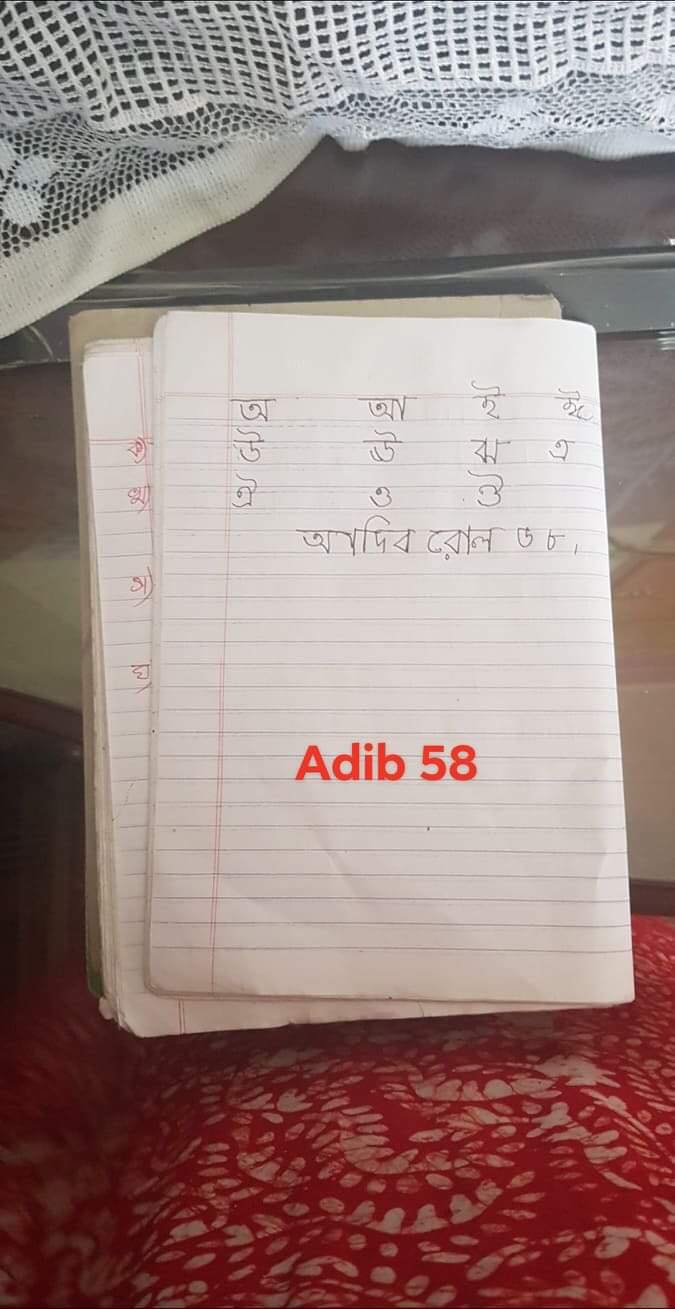 অ আ ই ঈ
উ ঊ ঋ এ
ঐ ও ঔ
আদিব রোল ৫৮।
ক)
খ)
গ)
ঘ)
Adib 58